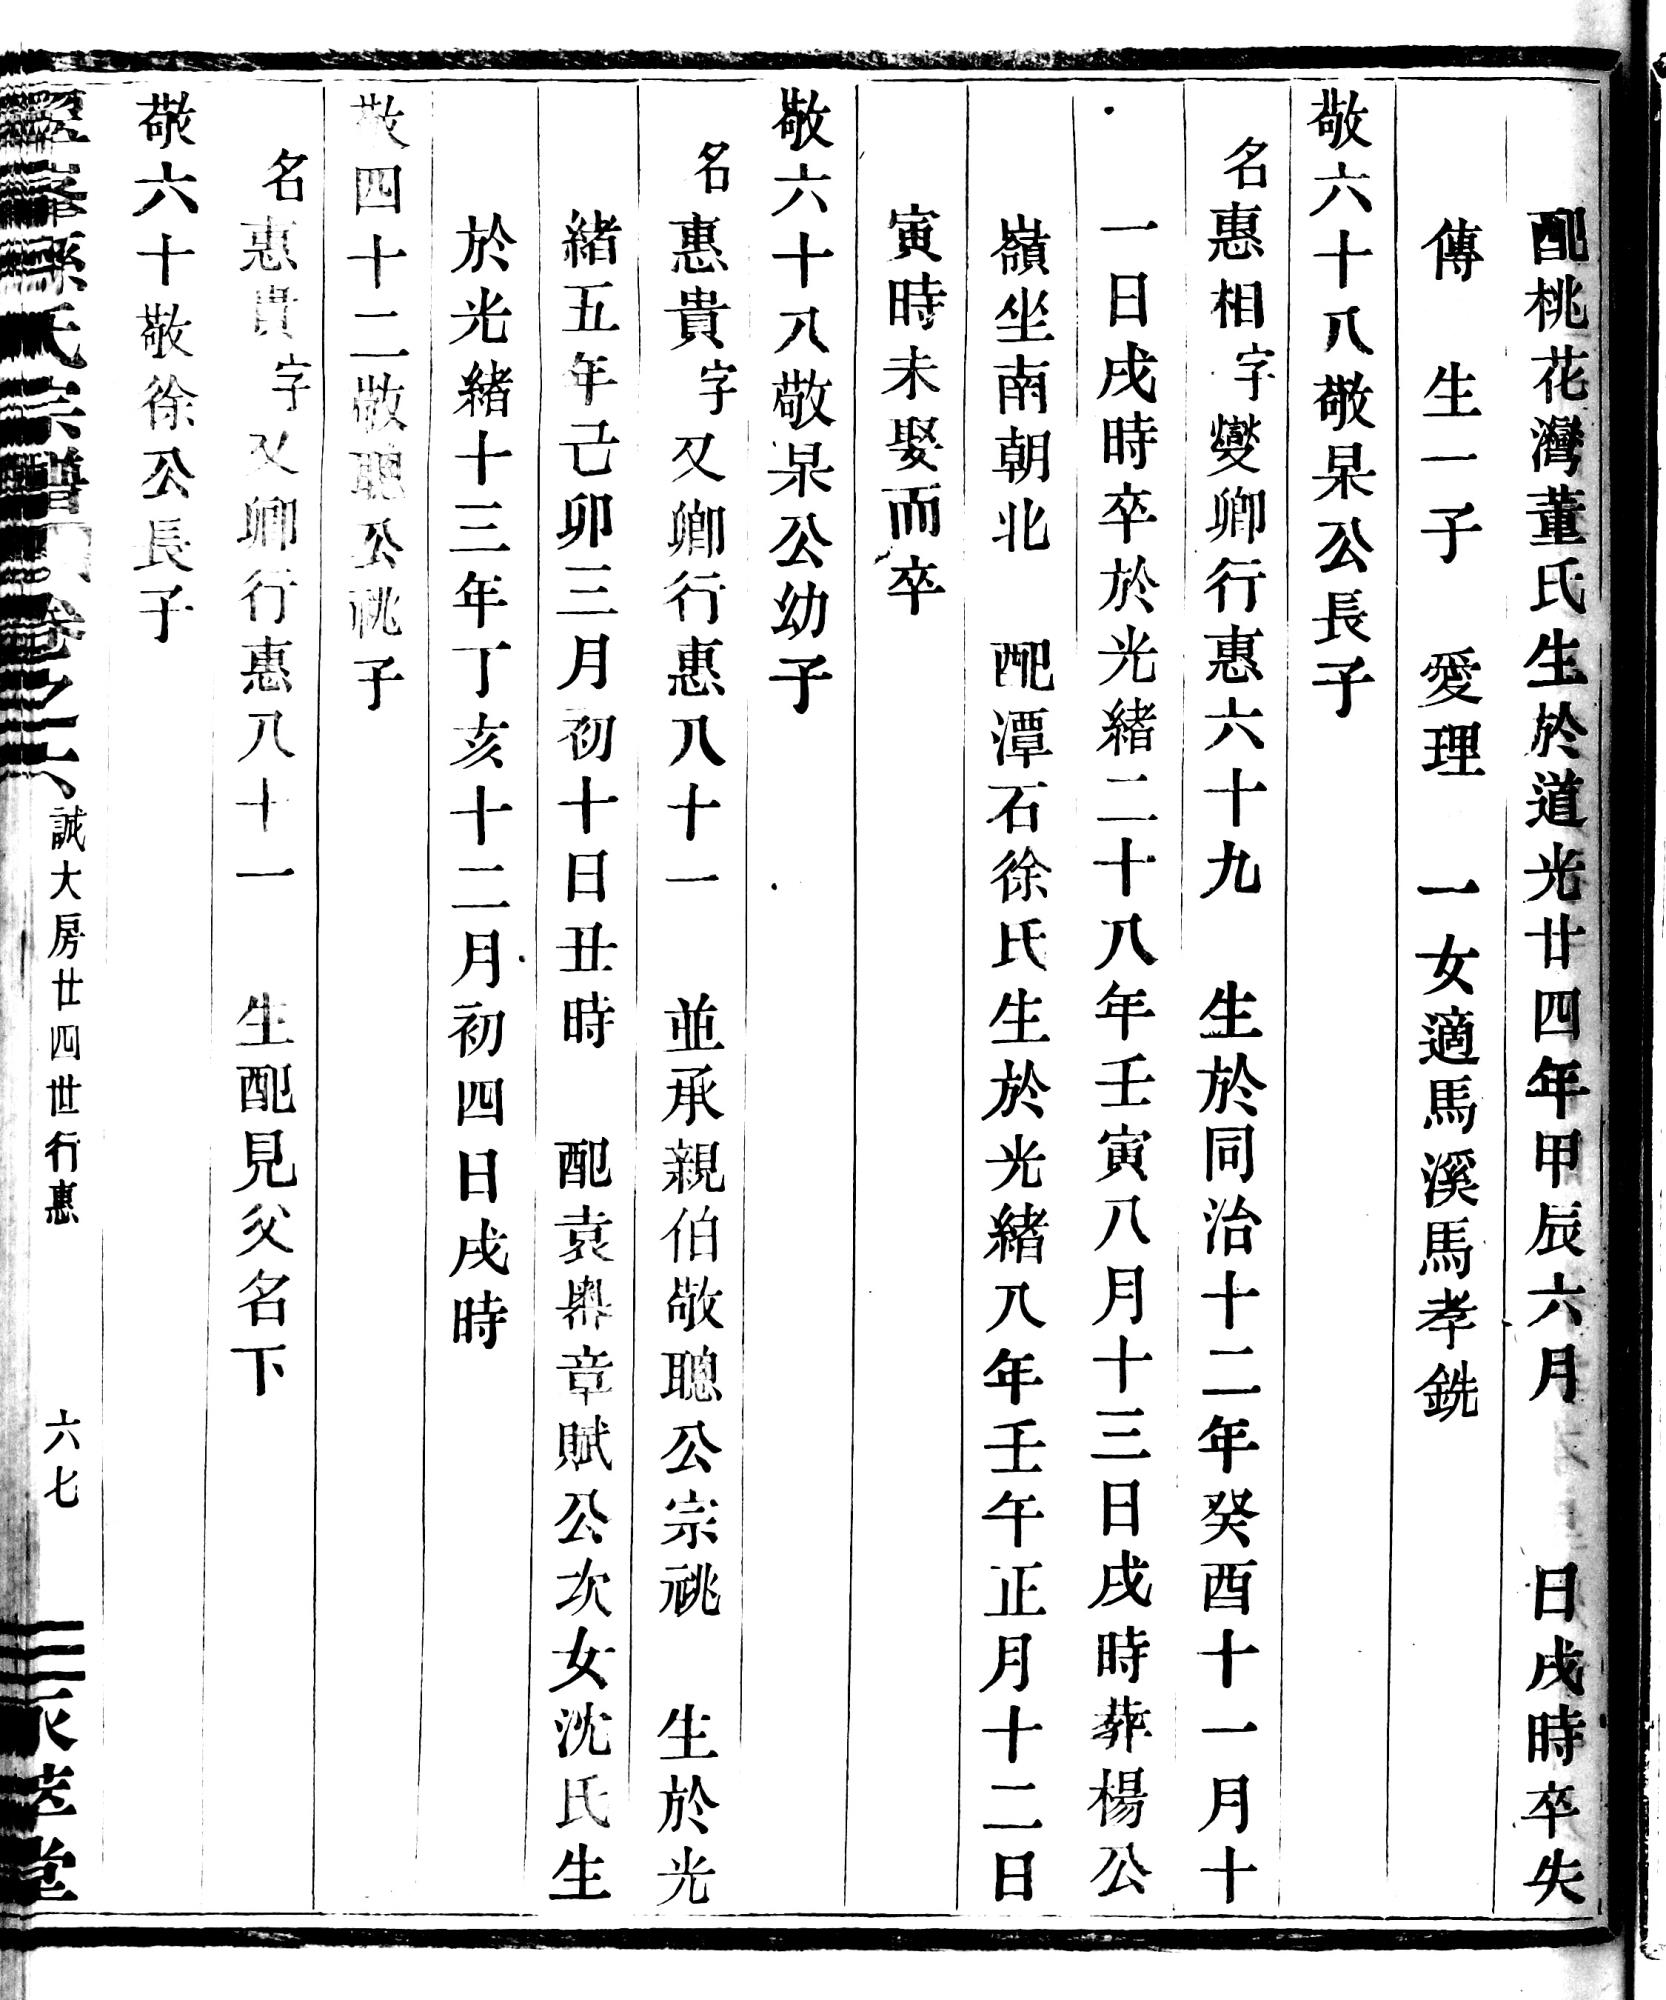 配桃花灣董氏生於道光廿四年甲辰六月　日戌時卒失
傳　生一子　愛理　一女適馬溪馬孝銑
敬六十八敬杲公長子
名惠相字燮卿行惠六十九　生於同治十二年癸酉十一月十
一日戌時卒於光緒二十八年壬寅八月十三日戌時葬楊公
嶺坐南朝北　配潭石徐氏生於光緒八年壬午正月十二日
寅時未娶而卒
敬六十八敬杲公幼子
名惠貴字又卿行惠八十一　並承親伯敬聰公宗祧　生於光
緒五年己卯三月初十日丑時　配袁嶴章賦公次女沈氏生
於光緒十三年丁亥十二月初四日戌時
敬四十二敬聰公祧子
名惠貴字又卿行惠八十一　生配見父名下
敬六十敬徐公長子
氏宗譜　卷之六　誠大房廿四世行惠　六七　堂